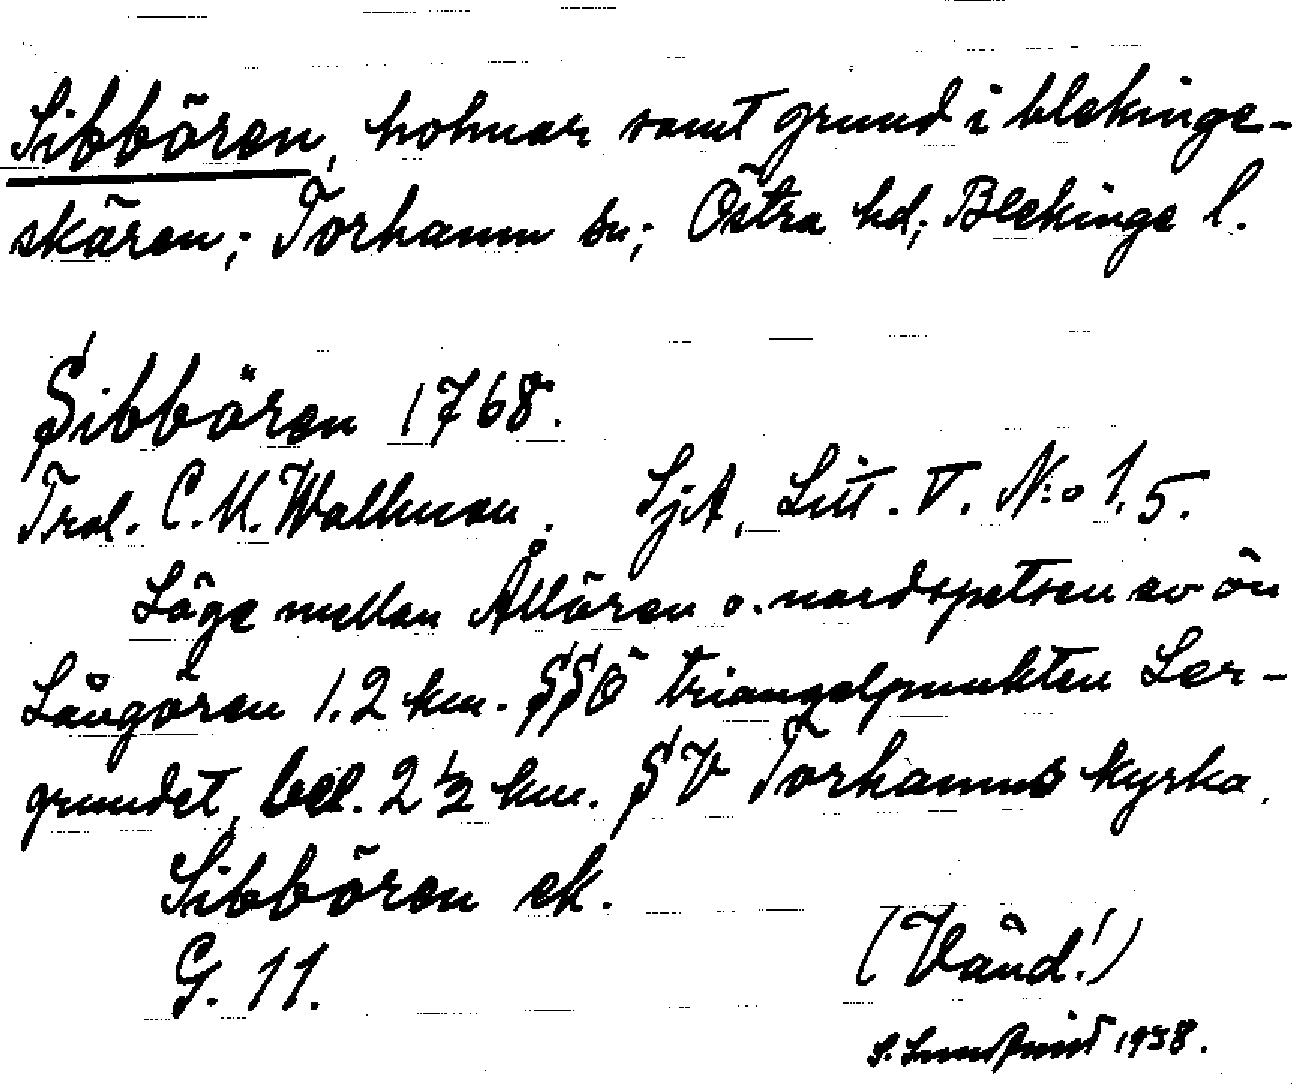 Sibbören, holmar samt grund i blekinge-
skären; Torhamn sn; Östra hd; Blekinge l.
Sibbören 1768.
Trol. C.M. Wallman. SjA, Litt. V. N:o 1.5.
Läge mellan Ållören o. nordspetsen av ön
Långören 1.2 km. SSÖ triangelpunkten Ler-
grundet, bel. 2 1/2 km. SV Torhamns kyrka.
Sibbören ek.
G. 11.
(Vänd!)
S. 1938.